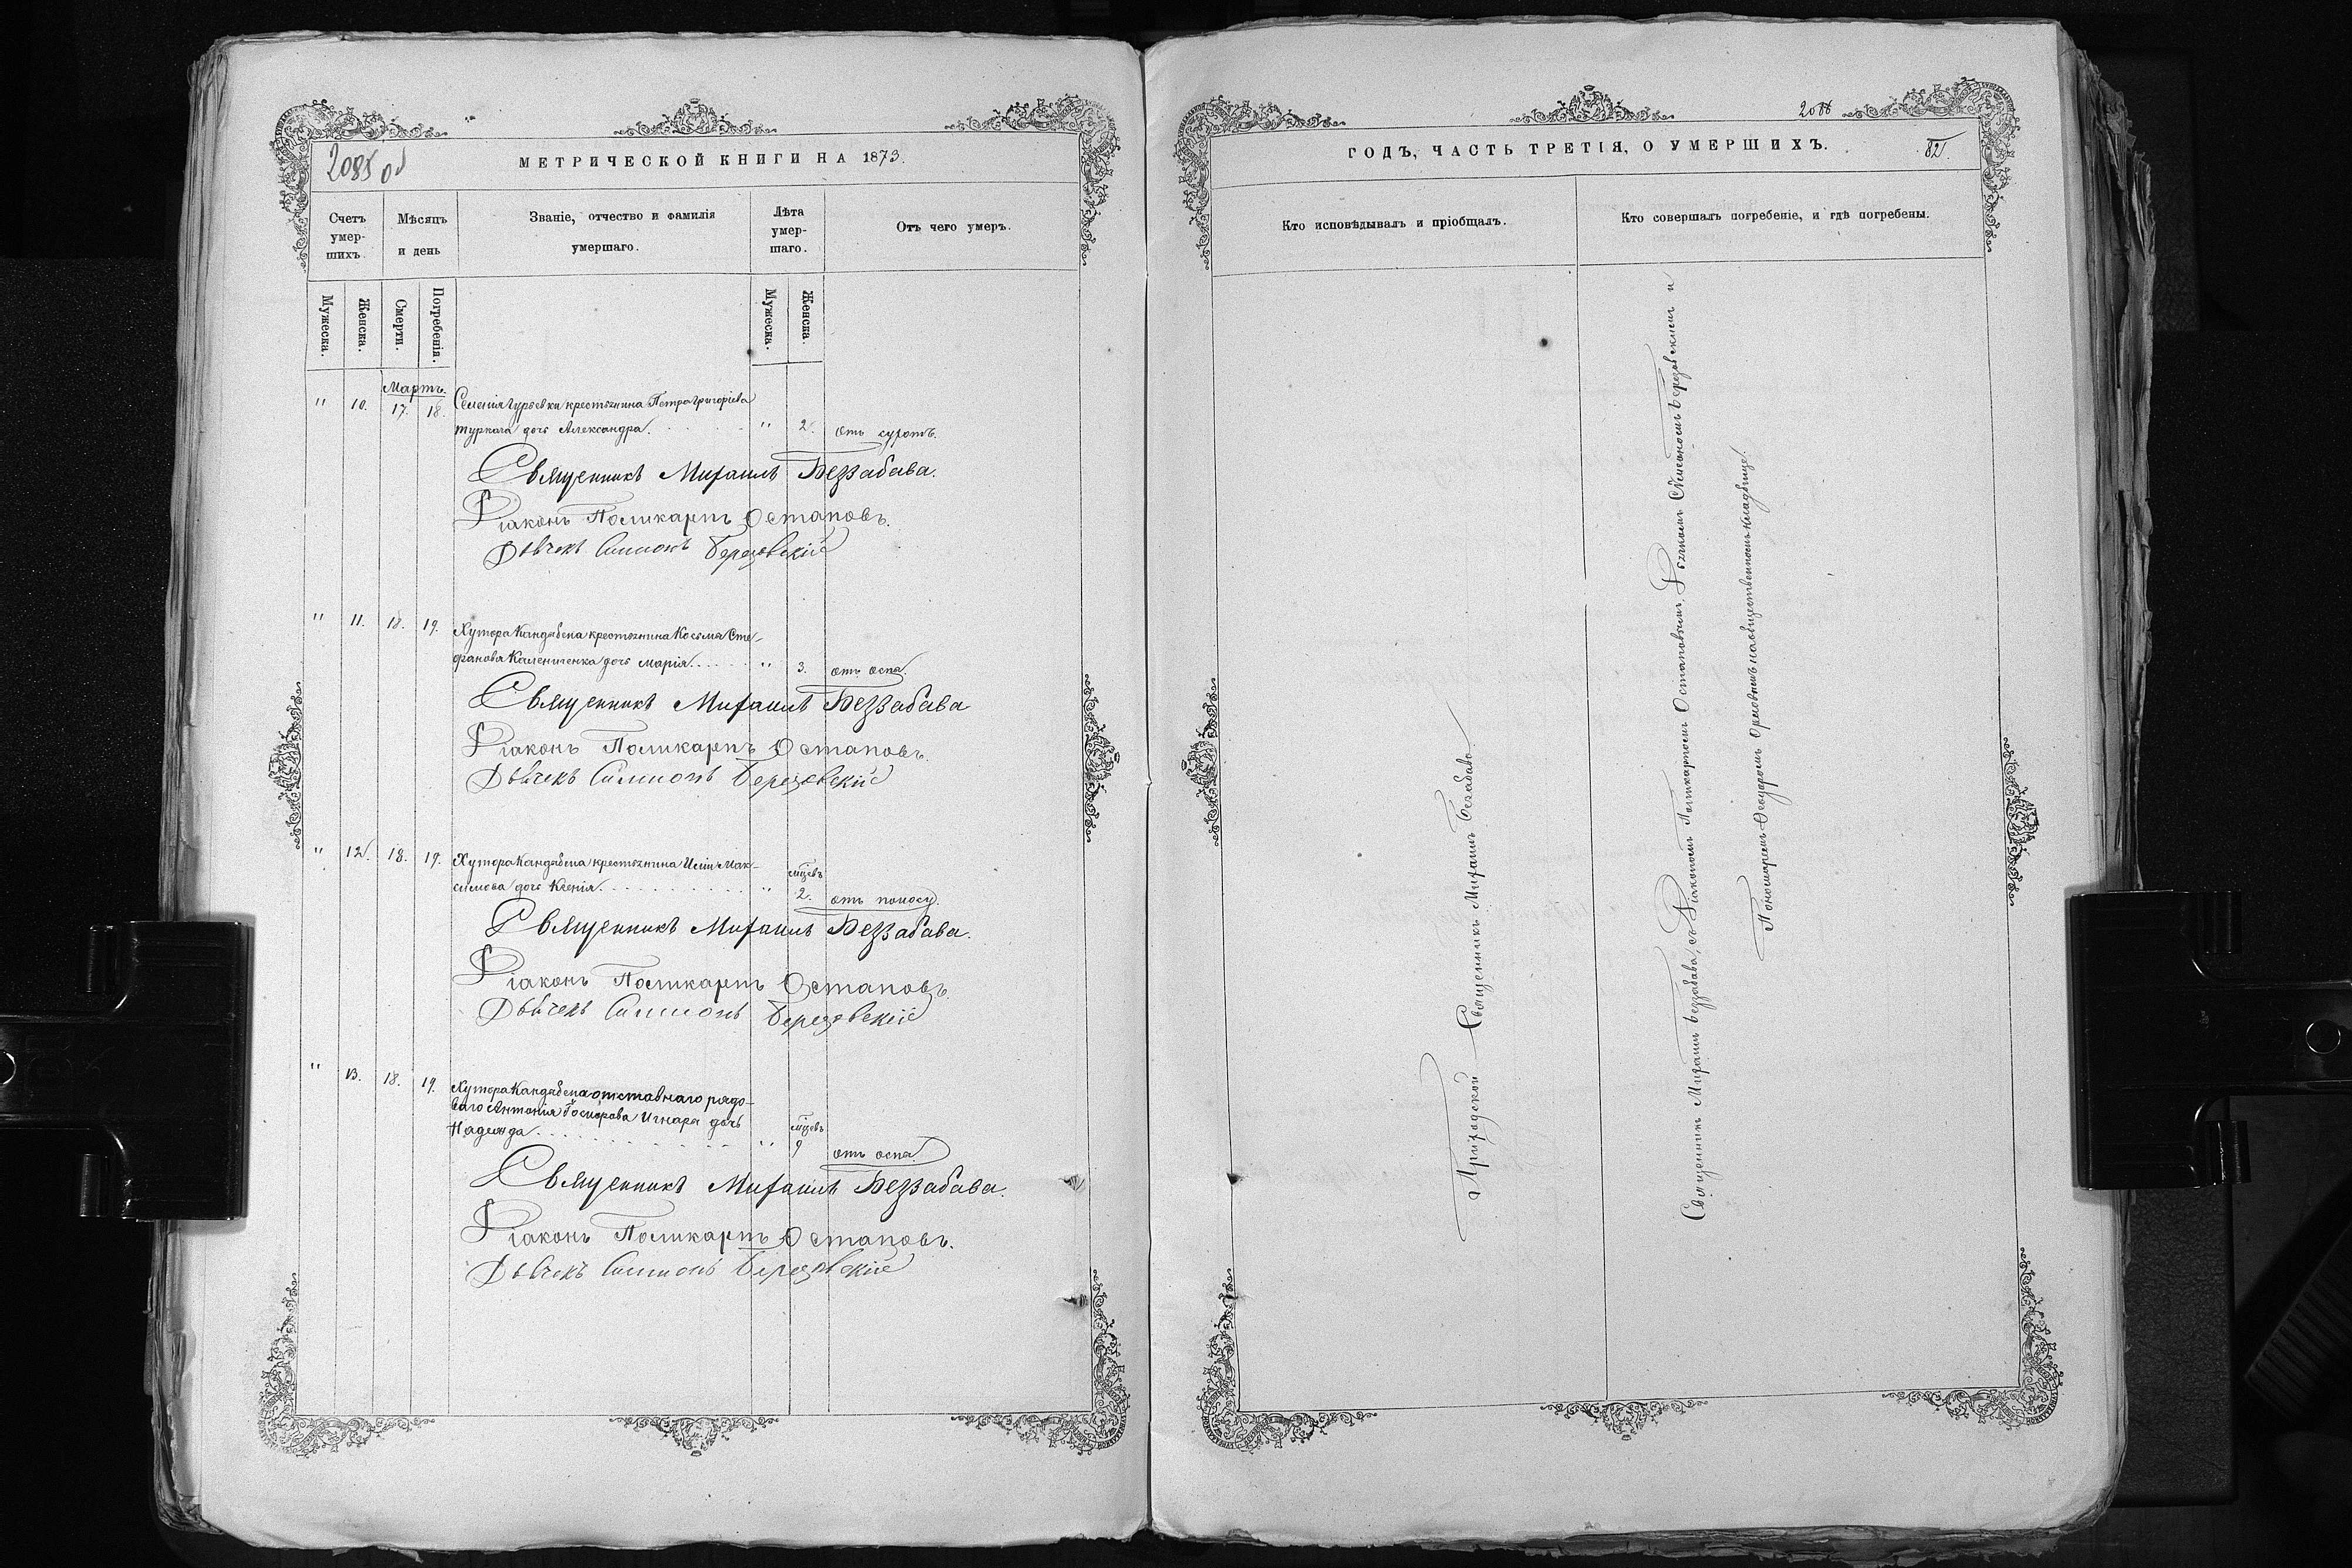 2085 об
МЕТРИЧЕСКОЙ КНИГИ НА 1873.
Счетъ умер-шихъ.
Мѣсяцъ и день
Званіе, отчество и фамилія умершаго.
Лѣта умер-шаго.
Отъ чего умеръ.
Мужеска.
Женска.
Смерти.
Погребенія.
Мужеска.
Женска.
Мартъ.
" 10. 17. 18. Селенія Гурьевки крестьянина Петра Григоріева
Туркога дочь Александра. " 2. отъ сухотъ.
Священникъ Михаилъ Беззабава.
Діаконъ Поликарпъ Остаповъ.
Дьячекъ Симионъ Березовскій
" 11. 18. 19. Хутора Кандыбина крестьянина Косьмы Сте-
фанова Калениченка дочь Марія. " 3. отъ оспы.
Священникъ Михаилъ Беззабава
Діаконъ Поликарпъ Остаповъ.
Дьячекъ Симионъ Березовскій
" 12. 18. 19. Хутора Кандыбина крестьянина Иліи Мак-
симова дочь Ксенія. " мѣцевъ 2. отъ поносу.
Священникъ Михаилъ Беззабава.
Діаконъ Поликарпъ Остаповъ.
Дьячекъ Симионъ Березовскій
" 13. 18. 19. Хутора Кандыбина отставнаго рядо-
ваго Антонія дочь
Надежда. " мѣцевъ 9 отъ оспы.
Священникъ Михаилъ Беззабава.
Діаконъ Поликарпъ Остаповъ.
Дьячекъ Симионъ Березовскій
2086
ГОДЪ, ЧАСТЬ ТРЕТІЯ, О УМЕРШИХЪ.
82.
Кто исповѣдывалъ и пріобщалъ.
Кто совершалъ погребеніе, и гдѣ погребены.
Приходской Священникъ Михаилъ Безабава.
Священникъ Михаилъ Беззабава, съ Діакономъ Поликарпомъ Остаповымъ, Дьячкомъ Симеономъ Березовскимъ и
Пономаремъ Ѳеодоромъ Орловымъ на общественномъ кладбищѣ.